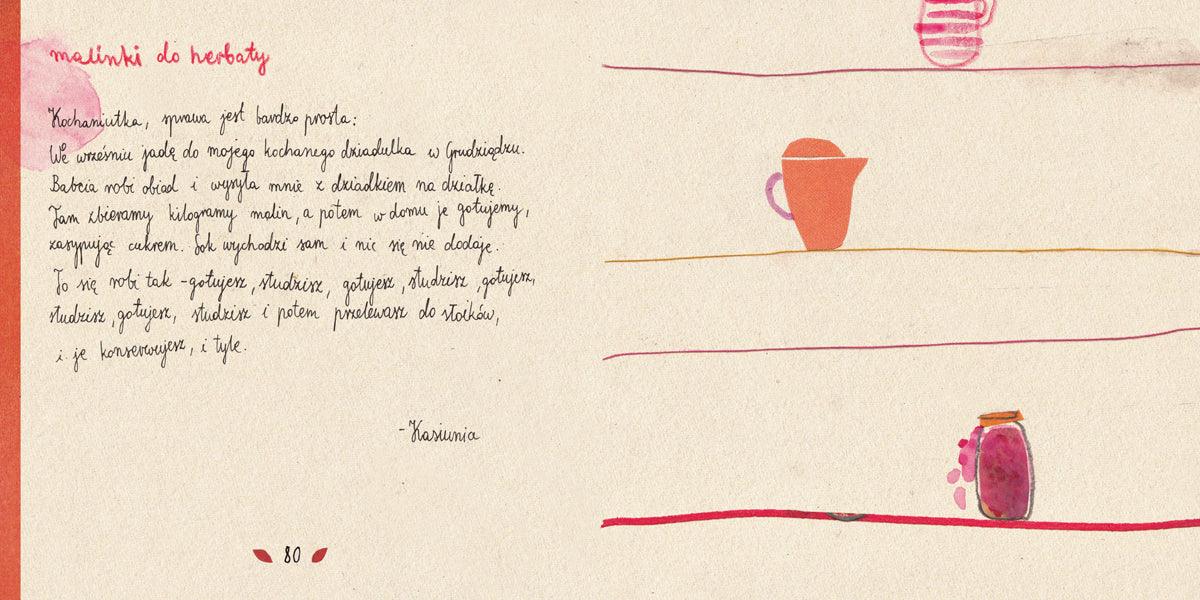 malinki do herbaty
Kochaniutka, sprawa jest bardzo prosta:
We wrześniu jadę do mojego kochanego dziadulka w Grudziądzu.
Babcia robi obiad i wysyła mnie z dziadkiem na działkę.
Tam zbieramy kilogramy malin, a potem w domu je gotujemy,
zasypując cukrem. Sok wychodzi sam i nic się nie dodaje.
To się robi tak - gotujesz, studzisz, gotujesz, studzisz, gotujesz,
studzisz, gotujesz, studzisz i potem przelewasz do słoików,
i je konserwujesz, i tyle.
- Kasiunia
80